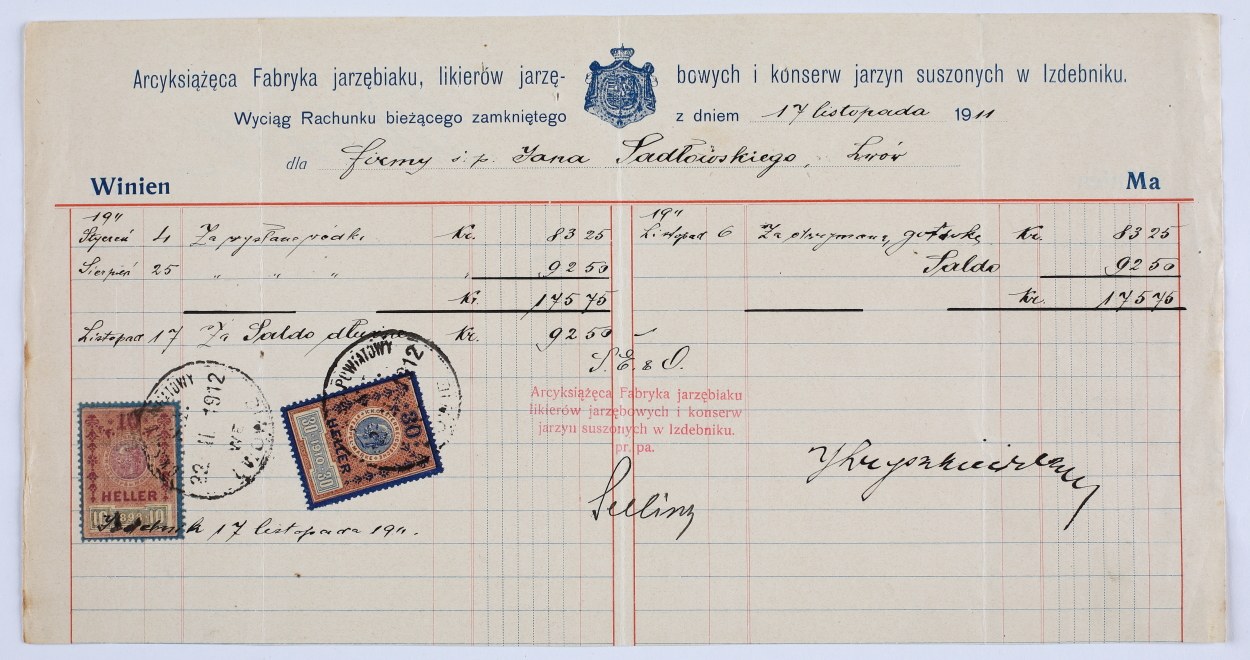 Arcyksiążęca Fabryka jarzębiaku, likierów jarzę- bowych i konserw jarzyn suszonych w Izdebniku.
Wyciąg Rachunku bieżącego zamkniętego z dniem 17 listopada 1911
dla firmy ś. p. Jana Sadłowskiego, Lwów
Winien Ma
1911 1911
Styczeń 4 Za wysłane wódki Kr. 83 25 Listopad 6 Za otrzymaną gotówkę Kr. 83 25
Sierpień 25 " " " " 92 50 Saldo 92 50
Kr. 175 75 Kr. 175 75
Listopad 17 Za Saldo dłużne Kr. 92 50
S. E. & O.
Arcyksiążęca Fabryka jarzębiaku
likierów jarzębowych i konserw
jarzyn suszonych w Izdebniku.
pr. pa.
POWIATOWY
22 II 1912
WE
POWIATOWY
1912
10
HELLER
10 1898 10
30
HELLER
30 1910 30
Izdebnik 17 listopada 1911.